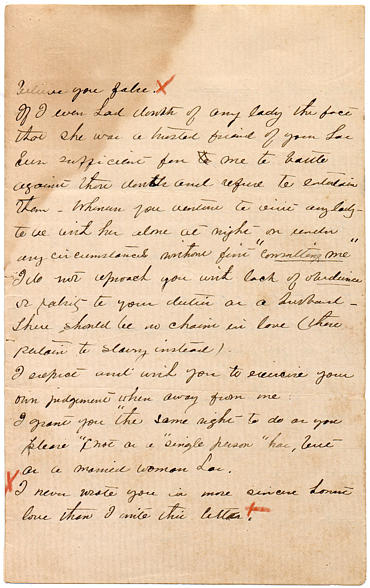 believe you false.
If I ever had doubt of any lady the fact
that she was a trusted friend of your has
been sufficient for me to battle
against those doubts and refuse to entertain
them - Whenever you venture to visit any lady -
to be with her alone at night - or under
any circumstances without first "consulting me"
I do not reproach you with lack of obedience
or to your duties as a husband -
There should be no chains in love (those
pertain to slavery instead).
I expect and wish you to exercise your
own judgement when away from me:
I grant you "the same right to do as you
please" (not as a "single person" has, but
as a married woman has.
I never wrote you in more sincere honest
love than I write this letter.